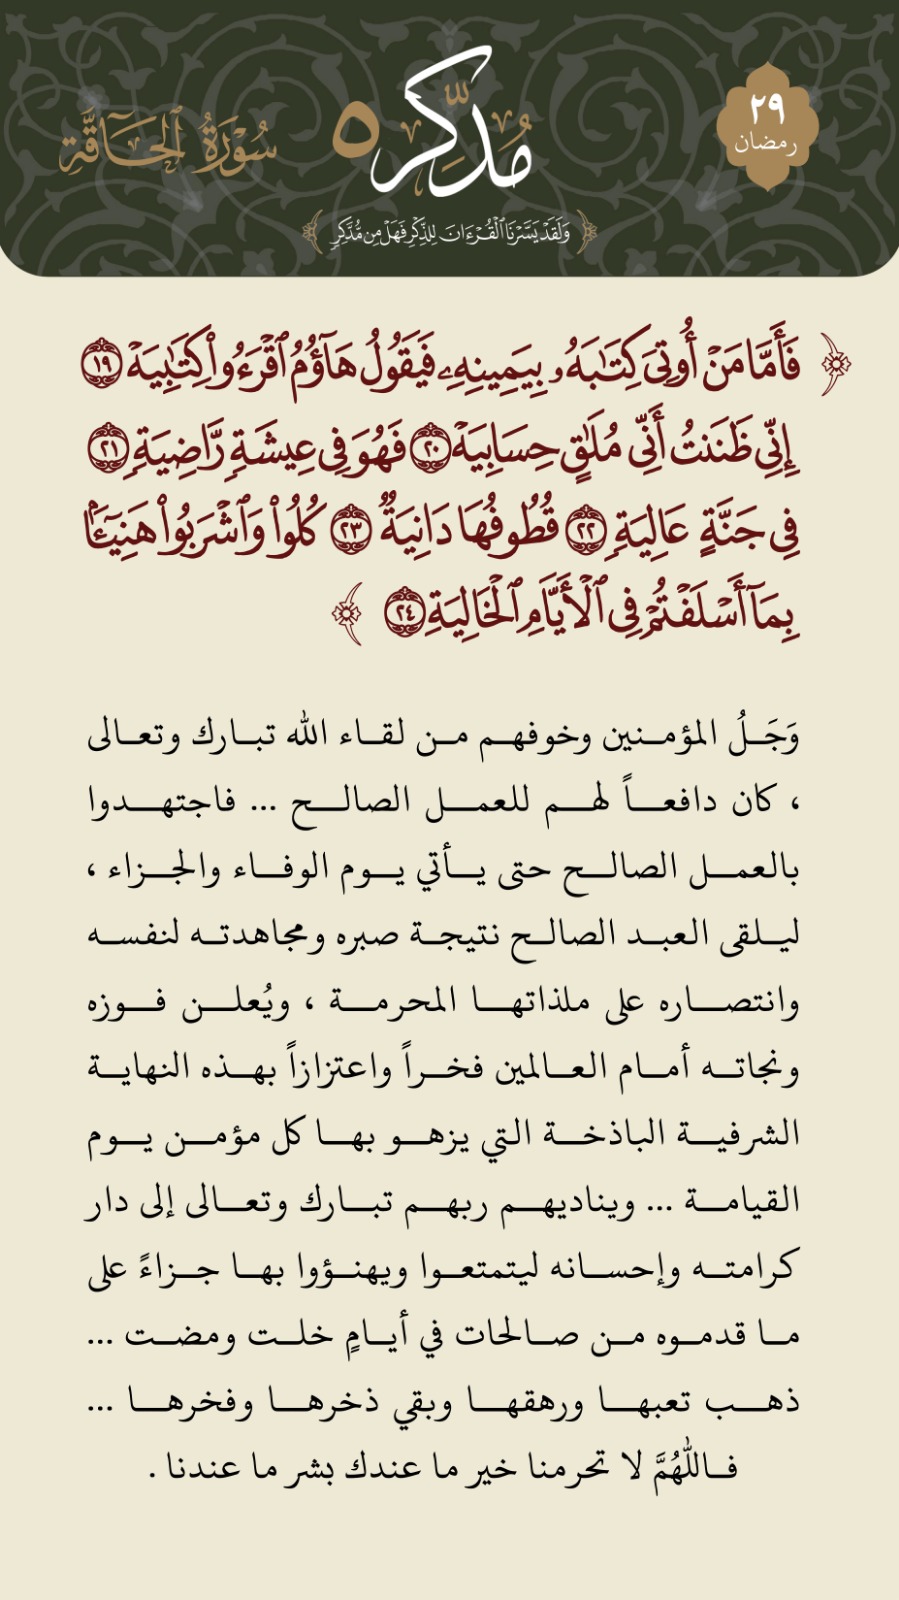 ٢٩
رمضان
مُدَّكِر ٥
سُورَةُ ٱلْحَآقَّةِ
وَلَقَدْ يَسَّرْنَا ٱلْقُرْءَانَ لِلذِّكْرِ فَهَلْ مِن مُّدَّكِرٍ
﴿ فَأَمَّا مَنْ أُوتِىَ كِتَٰبَهُۥ بِيَمِينِهِۦ فَيَقُولُ هَآؤُمُ ٱقْرَءُوا۟ كِتَٰبِيَهْ ١٩
إِنِّى ظَنَنتُ أَنِّى مُلَٰقٍ حِسَابِيَهْ ٢٠ فَهُوَ فِى عِيشَةٍ رَّاضِيَةٍ ٢١
فِى جَنَّةٍ عَالِيَةٍ ٢٢ قُطُوفُهَا دَانِيَةٌ ٢٣ كُلُوا۟ وَٱشْرَبُوا۟ هَنِيٓـًٔۢا
بِمَآ أَسْلَفْتُمْ فِى ٱلْأَيَّامِ ٱلْخَالِيَةِ ٢٤ ﴾
وَجَلُ المؤمنين وخوفهم من لقاء الله تبارك وتعالى
، كان دافعاً لهم للعمل الصالح ... فاجتهدوا
بالعمل الصالح حتى يأتي يوم الوفاء والجزاء ،
ليلقى العبد الصالح نتيجة صبره ومجاهدته لنفسه
وانتصاره على ملذاتها المحرمة ، ويُعلن فوزه
ونجاته أمام العالمين فخراً واعتزازاً بهذه النهاية
الشرفية الباذخة التي يزهو بها كل مؤمن يوم
القيامة ... ويناديهم ربهم تبارك وتعالى إلى دار
كرامته وإحسانه ليتمتعوا ويهنؤوا بها جزاءً على
ما قدموه من صالحات في أيامٍ خلت ومضت ...
ذهب تعبها ورهقها وبقي ذخرها وفخرها ...
فاللهُمَّ لا تحرمنا خير ما عندك بشر ما عندنا .